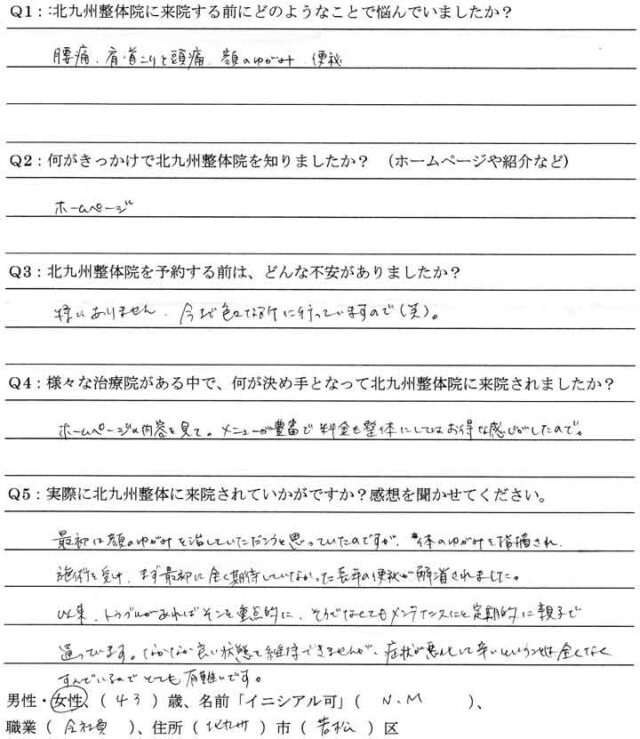 Q1：:北九州整体院に来院する前にどのようなことで悩んでいましたか？
腰痛、肩・首こりと頭痛、顔のゆがみ、便秘
Q2：何がきっかけで北九州整体院を知りましたか？　（ホームページや紹介など）
ホームページ
Q3：北九州整体院を予約する前は、どんな不安がありましたか？
特にありません。今まで色々な所に行っていますので（笑）。
Q4：様々な治療院がある中で、何が決め手となって北九州整体院に来院されましたか？
ホームページの内容を見て。メニューが豊富で料金も整体にしてはお得な感じがしたので。
Q5：実際に北九州整体に来院されていかがですか？感想を聞かせてください。
最初は顔のゆがみを治していただこうと思っていたのですが、体のゆがみを指摘され、
施術を受け、まず最初に全く期待していなかった長年の便秘が解消されました。
以来、トラブルがあればそこを重点的に、そうでなくてもメンテナンスにと定期的に親子で
通っています。なかなか良い状態を維持できませんが、症状が悪化して辛いということは全くなく
すんでいるのでとても有難いです。
男性・女性、（ 43 ）歳、名前「イニシアル可」（ N.M ）、
職業（ 会社員 ）、住所（ 北九州 ）市（ 若松 ）区